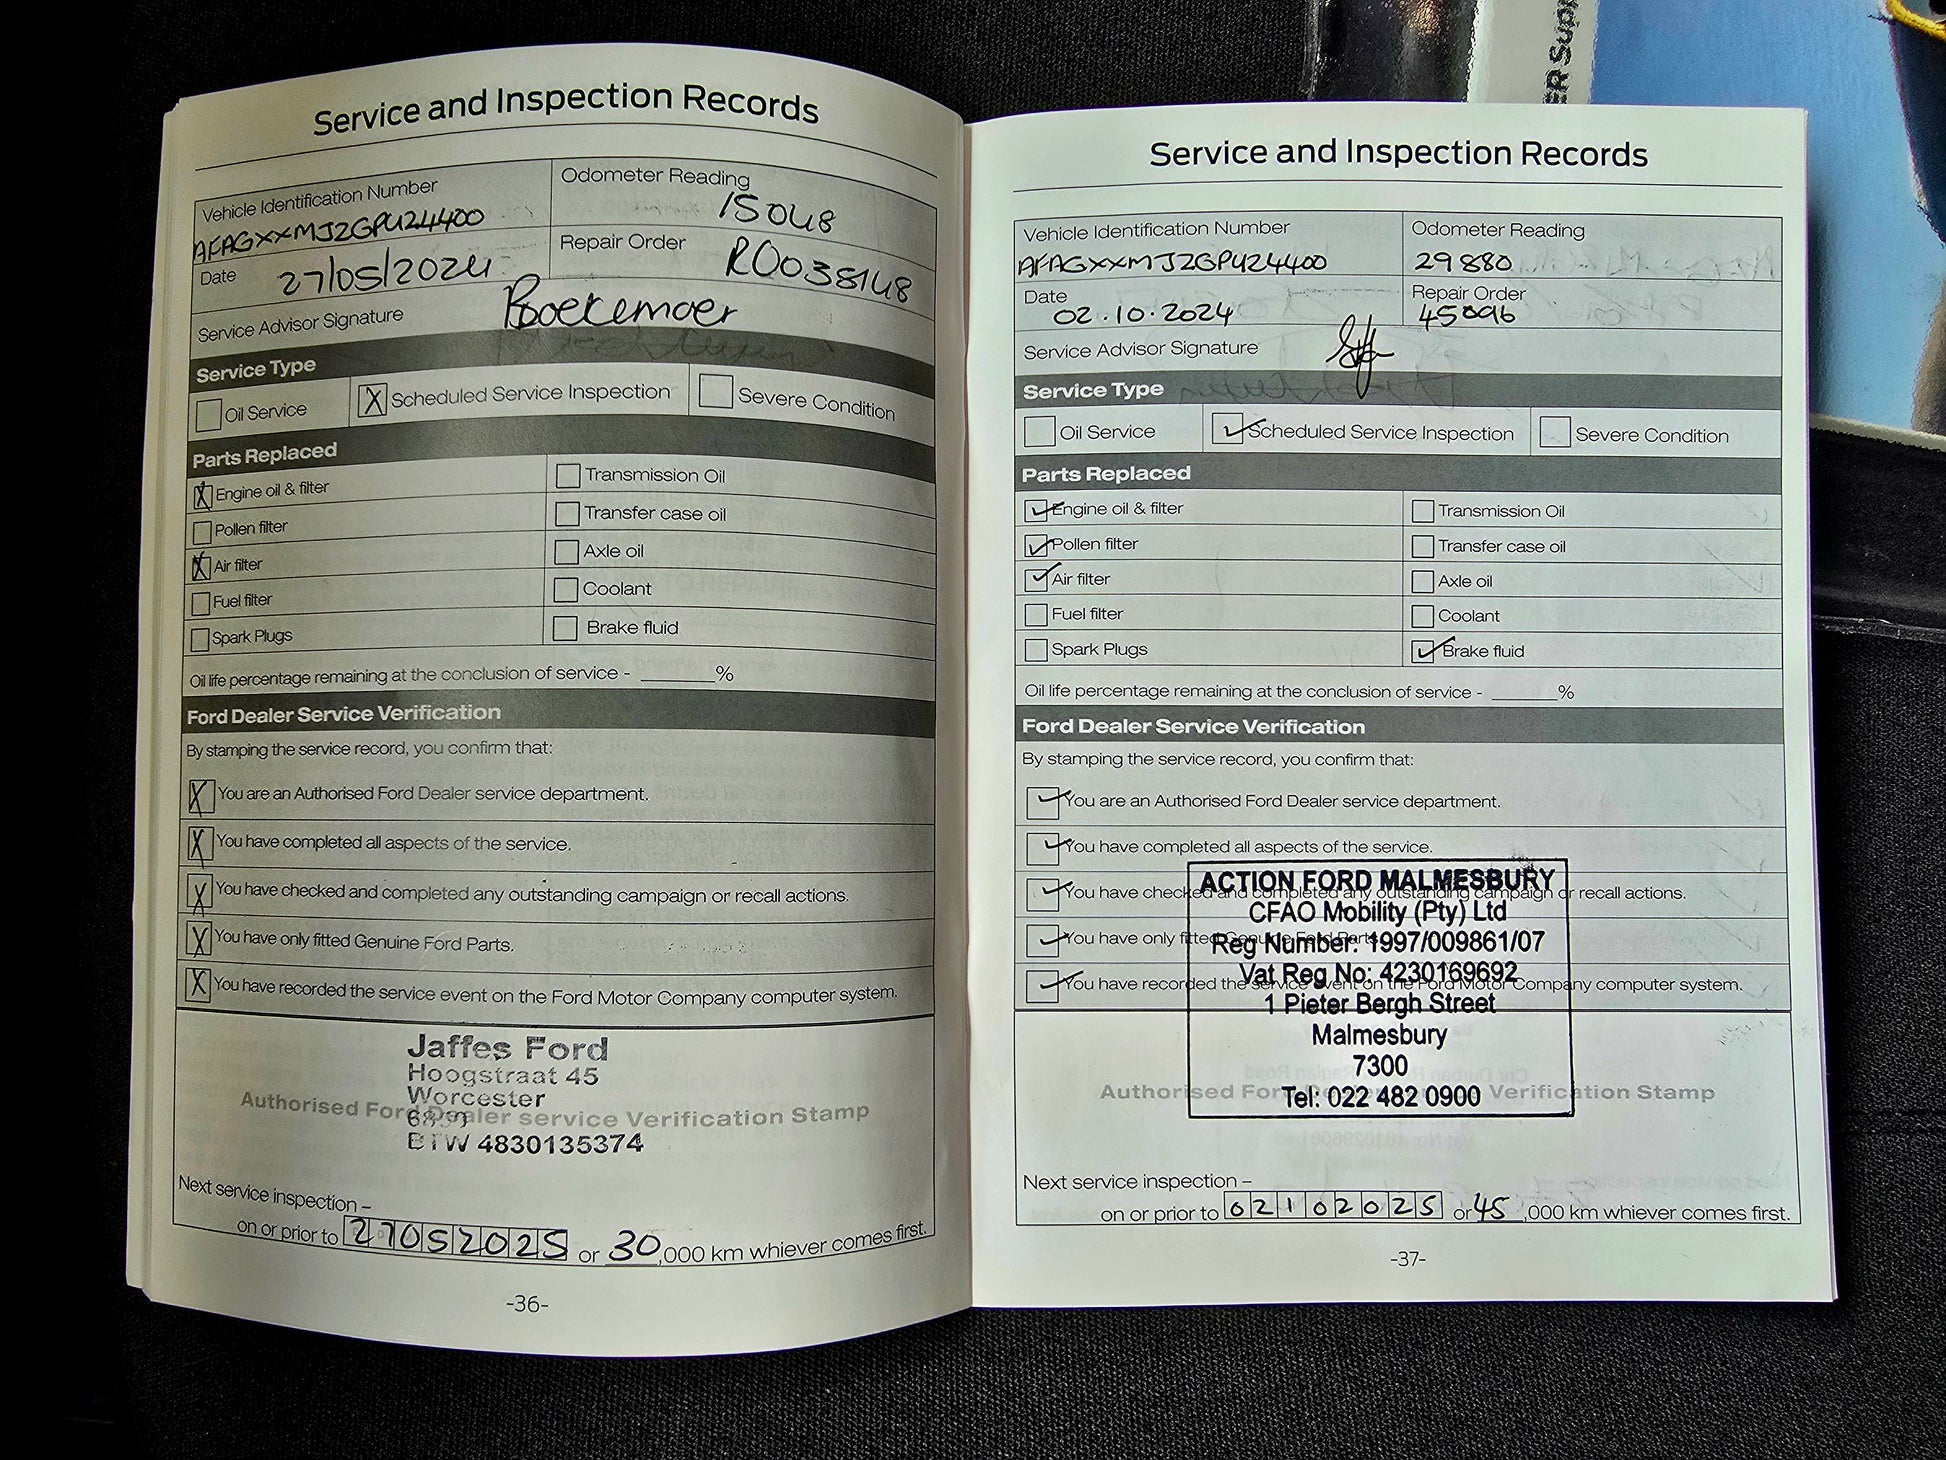 Service and Inspection Records
Vehicle Identification Number
AFAGXXMJ2GPU24400
Odometer Reading
15048
Date 27/05/2024
Repair Order R0038148
Service Advisor Signature Boekemoer
Service Type
Oil Service
X Scheduled Service Inspection
Severe Condition
Parts Replaced
X Engine oil & filter
Transmission Oil
Pollen filter
Transfer case oil
X Air filter
Axle oil
Fuel filter
Coolant
Spark Plugs
Brake fluid
Oil life percentage remaining at the conclusion of service - ______%
Ford Dealer Service Verification
By stamping the service record, you confirm that:
X You are an Authorised Ford Dealer service department.
X You have completed all aspects of the service.
X You have checked and completed any outstanding campaign or recall actions.
X You have only fitted Genuine Ford Parts.
X You have recorded the service event on the Ford Motor Company computer system.
Jaffes Ford
Hoogstraat 45
Worcester
Authorised Ford Dealer service Verification Stamp
BTW 4830135374
Next service inspection –
on or prior to 27052025 or 30,000 km whiever comes first.
-36-
Service and Inspection Records
Vehicle Identification Number
AFAGXXMJ2GPU24400
Odometer Reading
29880
Date
02.10.2024
Repair Order
45096
Service Advisor Signature
Service Type
Oil Service
✓ Scheduled Service Inspection
Severe Condition
Parts Replaced
✓ Engine oil & filter
Transmission Oil
✓ Pollen filter
Transfer case oil
✓ Air filter
Axle oil
Fuel filter
Coolant
Spark Plugs
✓ Brake fluid
Oil life percentage remaining at the conclusion of service - ______%
Ford Dealer Service Verification
By stamping the service record, you confirm that:
✓ You are an Authorised Ford Dealer service department.
✓ You have completed all aspects of the service.
✓ You have checked and completed any outstanding campaign or recall actions.
✓ You have only fitted Genuine Ford Parts.
✓ You have recorded the service event on the Ford Motor Company computer system.
ACTION FORD MALMESBURY
CFAO Mobility (Pty) Ltd
Reg Number: 1997/009861/07
Vat Reg No: 4230169692
1 Pieter Bergh Street
Malmesbury
7300
Tel: 022 482 0900
Authorised Ford Dealer service Verification Stamp
Next service inspection –
on or prior to 02102025 or 45,000 km whiever comes first.
-37-